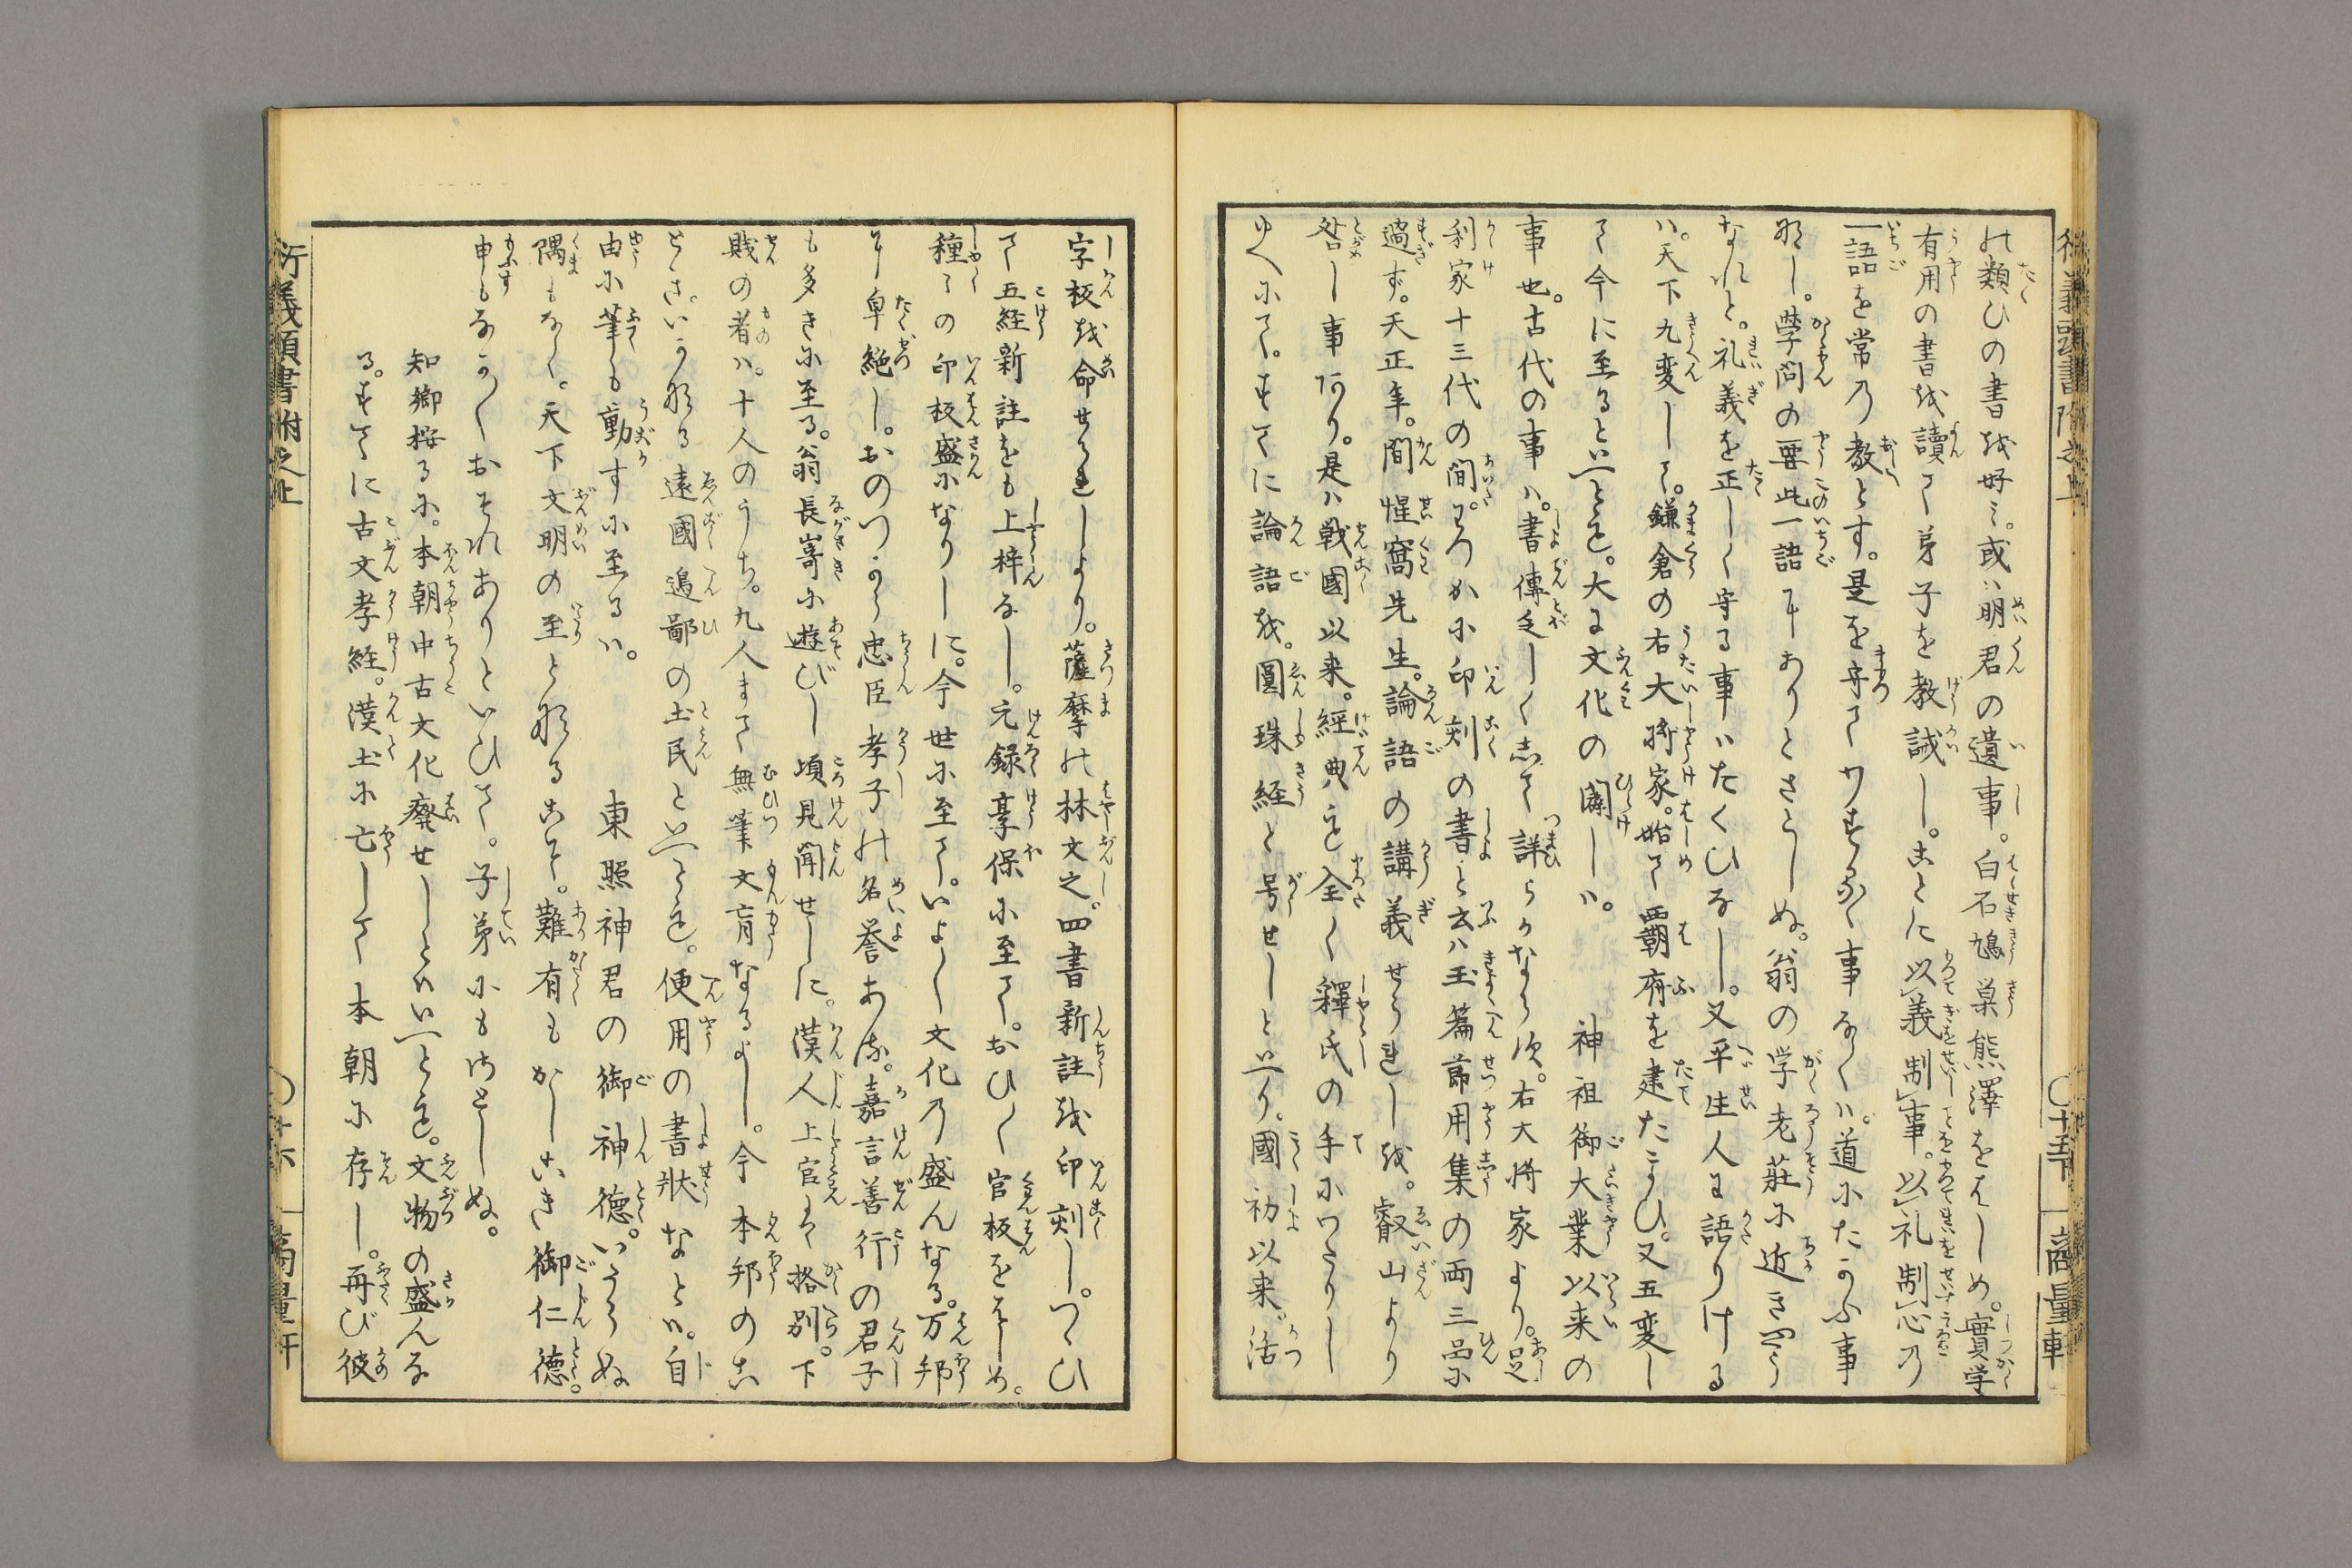 の類ひの書を好ミ。或ハ明君の遺事。白石鳩巣熊澤をはしめ。實学
有用の書を讀て弟子を教誡し。ことに以義制事。以礼制心乃
一語を常乃教とす。是を守てわするゝ事なくハ。道にたかふ事
なし。學問の要此一語にありとさとしぬ。翁の学老莊に近きやう
なれと。礼義を正しく守る事ハたくひなし。又平生人に語りける
ハ。天下九変して。鎌倉の右大將家。始て覇府を建たまひ。又五変し
て今に至るといへとも。大に文化の闢しハ。 神祖御大業以来の
事也。古代の事ハ。書傳乏しく志て詳らかならす。右大将家より。足
利家十三代の間。わつかに印刻の書と云ハ玉篇節用集の両三品に
過す。天正年。間惺窩先生。論語の講義せられしを。叡山より
咎し事あり。是ハ戦國以来。經典を全く釋氏の手にわたりし
ゆへにて。すてに論語を。圓珠経と号せしといへり。國初以来。活
字板を命せられしより。薩摩の林文之。四書新註を印刻し。つひ
て五経新註をも上梓なし。元録享保に至て。おひく官板をはしめ。
種々の印板盛になりしに。今世に至て。いよく文化乃盛んなる。万邦
に卓絶し。おのつから忠臣孝子の名誉あり。嘉言善行の君子
も多きに至る。翁長嵜に遊びし頃見聞せしに。漢人上官は格別。下
賎の者ハ。十人のうち。九人まて無筆文盲なるよし。今本邦のこ
とき。いかなる遠國邊鄙の土民といへとも。便用の書狀なとハ。自
由に筆も動すに至るハ。 東照神君の御神德。いたらぬ
隅もなく。天下文明の至となるこそ。難有もかしこき御仁德。
申もなかくおそれありといひて。子弟にもさとしぬ。
知郷桜るに。本朝中古文化癈せしとハいへとも。文物の盛んな
る。すてに古文孝経。漢土に亡して本朝に存し。再び彼
衍義頭書附之上
〇十五
商量軒
衍義頭書附之上
〇十六
商量軒